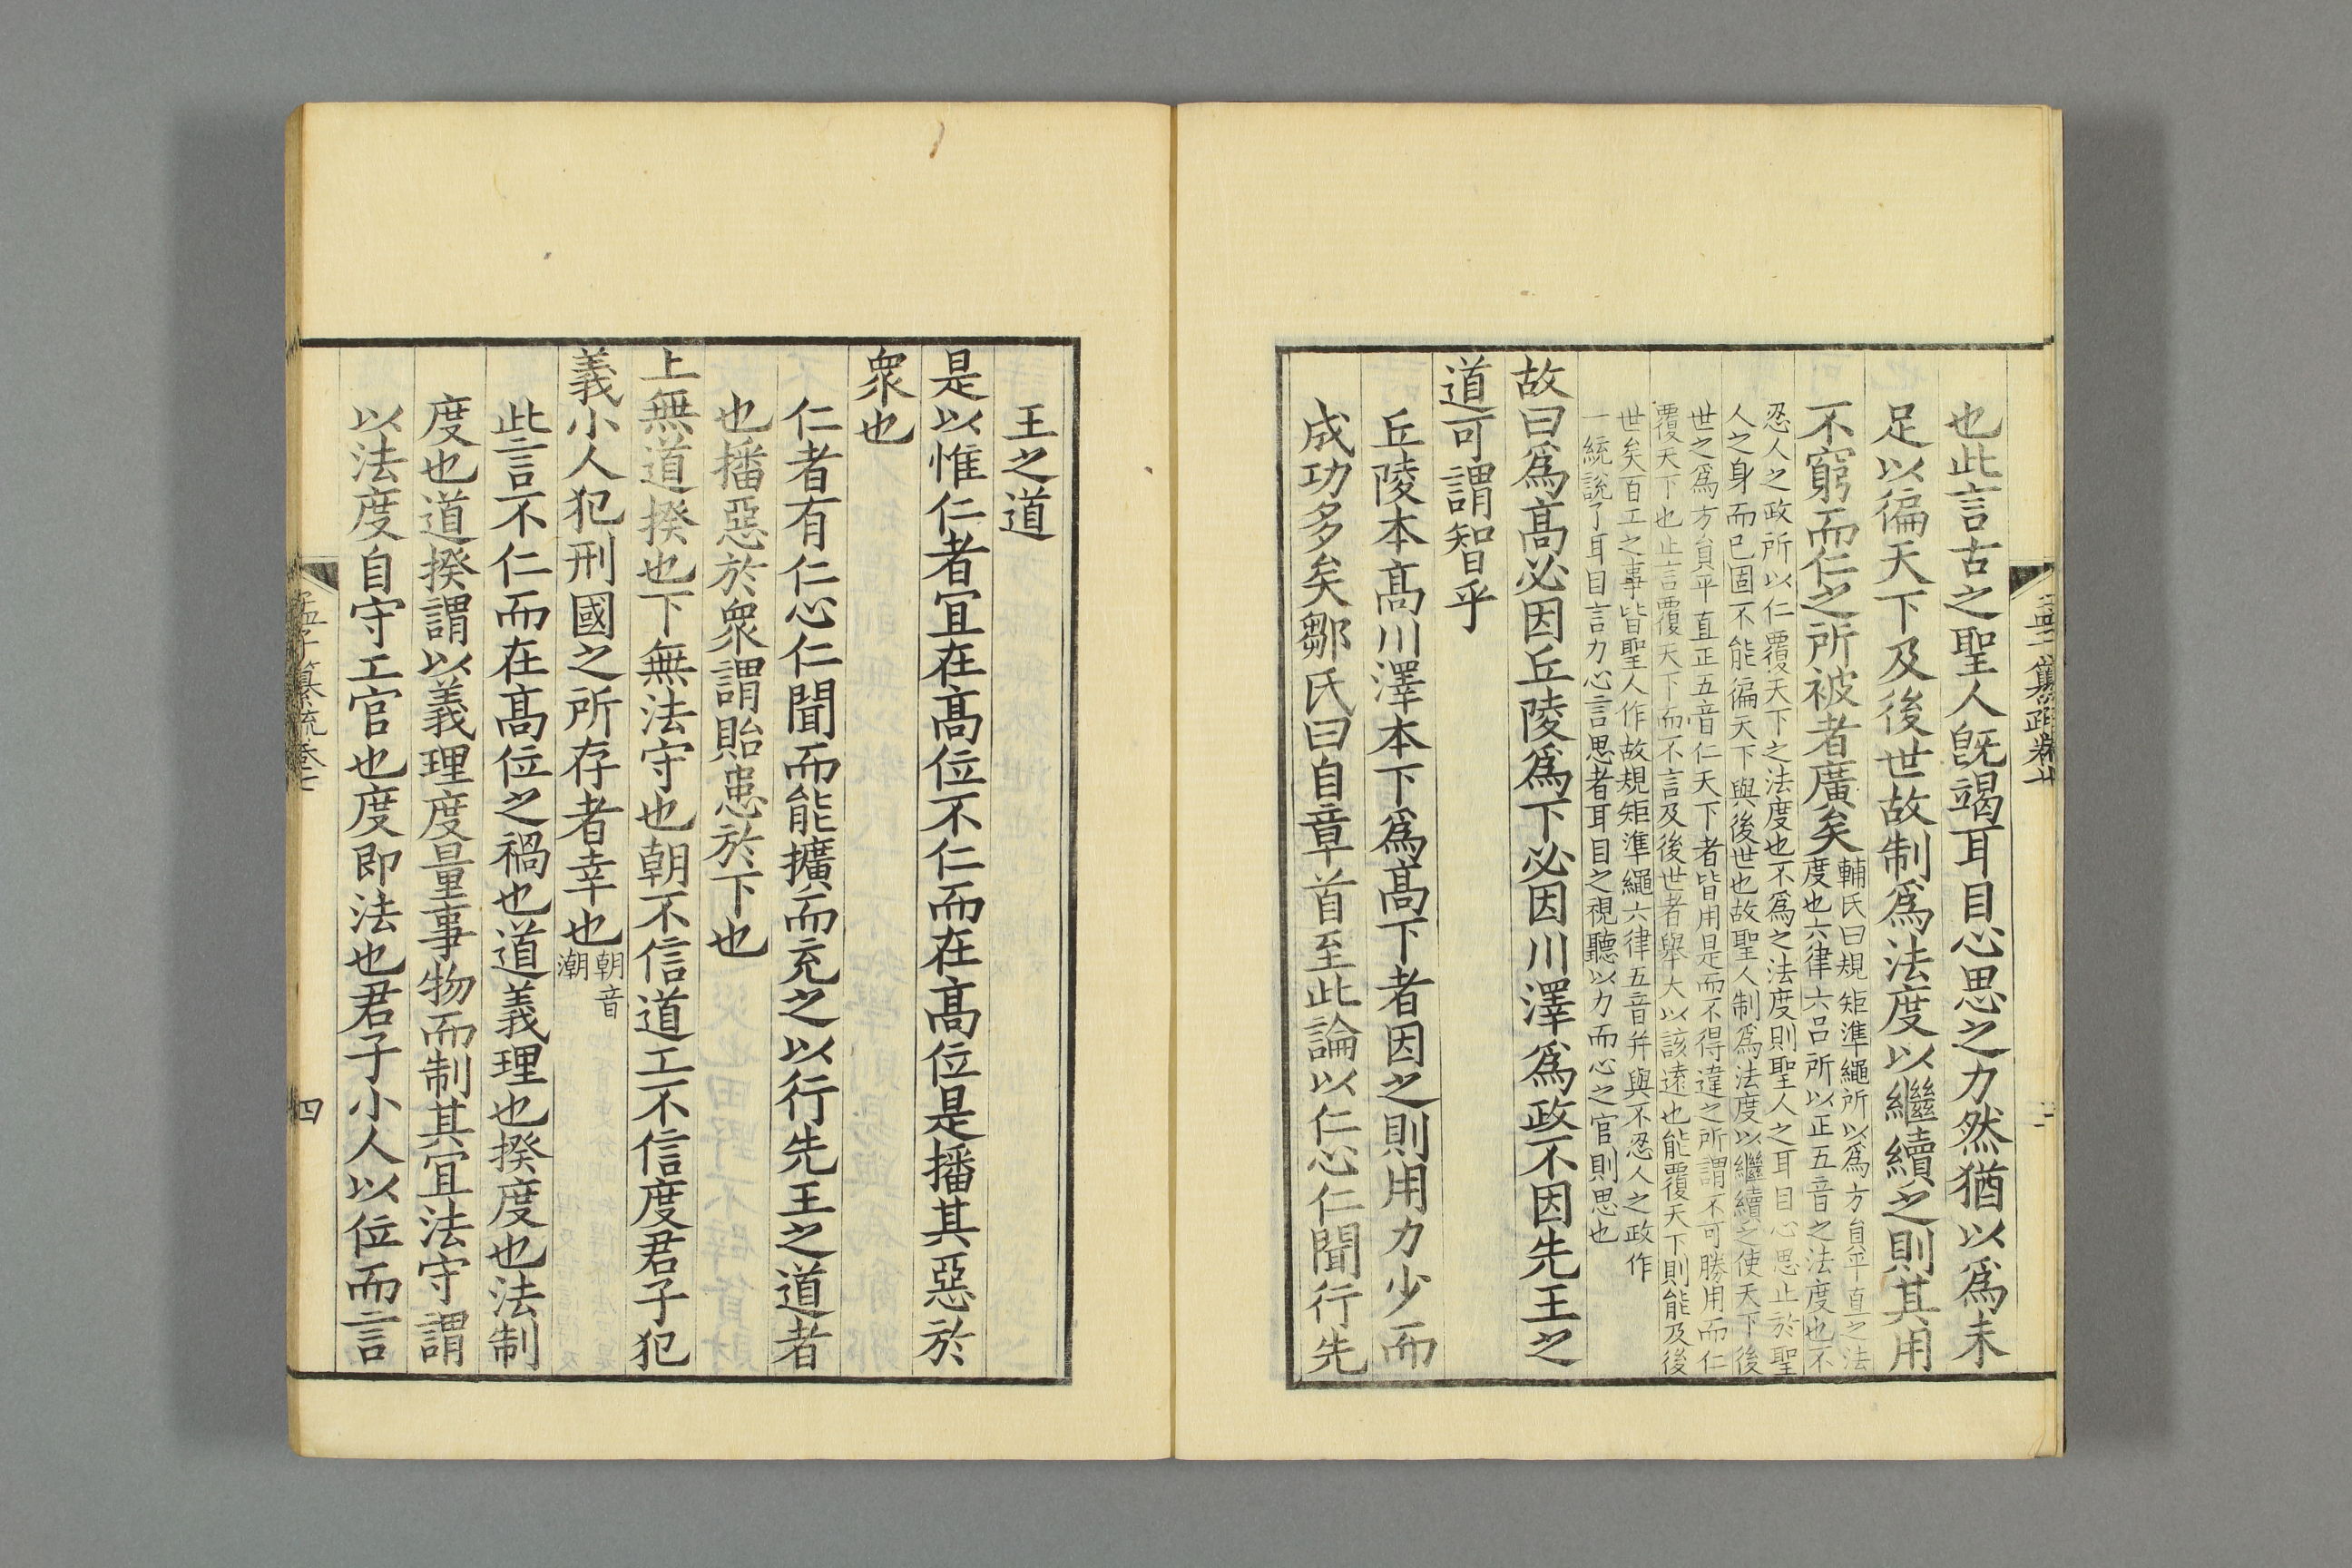 也此言古之聖人旣竭耳目心思之力然猶以爲未
足以徧天下及後世故制爲法度以繼續之則其用
不窮而仁之所被者廣矣
輔氏曰規矩準繩所以爲方員平直之法
度也六律六呂所以正五音之法度也不
忍人之政所以仁覆天下之法度也不爲之法度則聖人之耳目心思止於聖
人之身而已固不能徧天下與後世也故聖人制爲法度以繼續之使天下後
世之爲方員平直正五音仁天下者皆用是而不得違之所謂不可勝用而仁
覆天下也止言覆天下而不言及後世者舉大以該遠也能覆天下則能及後
世矣百工之事皆聖人作故規矩準繩六律五音并與不忍人之政作
一統說了耳目言力心言思者耳目之視聽以力而心之官則思也
故曰爲髙必因丘陵爲下必因川澤爲政不因先王之
道可謂智乎
丘陵本髙川澤本下爲髙下者因之則用力少而
成功多矣鄒氏曰自章首至此論以仁心仁聞行先
王之道
是以惟仁者宜在髙位不仁而在髙位是播其惡於
衆也
仁者有仁心仁聞而能擴而充之以行先王之道者
也播惡於衆謂貽患於下也
上無道揆也下無法守也朝不信道工不信度君子犯
義小人犯刑國之所存者幸也
朝音
潮
此言不仁而在髙位之禍也道義理也揆度也法制
度也道揆謂以義理度量事物而制其宜法守謂
以法度自守工官也度即法也君子小人以位而言
孟子纂疏卷七
四